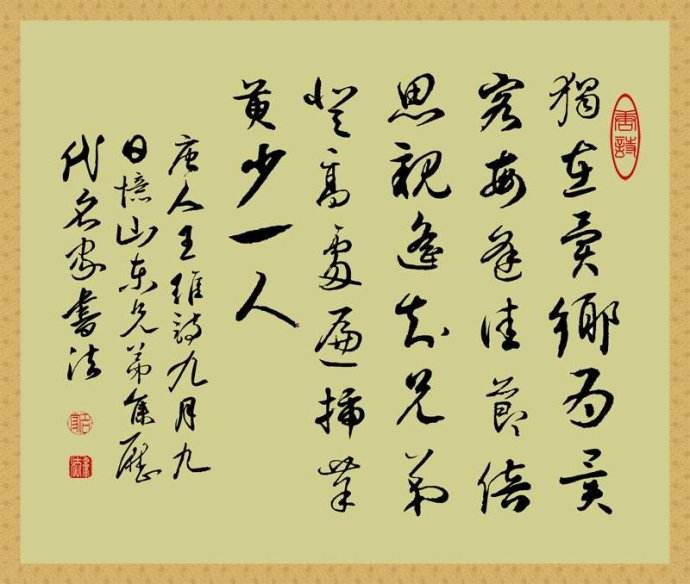 唐詩
獨在異鄉為異
客每逢佳節倍
思親遙知兄弟
登高處遍插茱
萸少一人
唐人王維詩九月九
日憶山東兄弟集歷
代名家書法